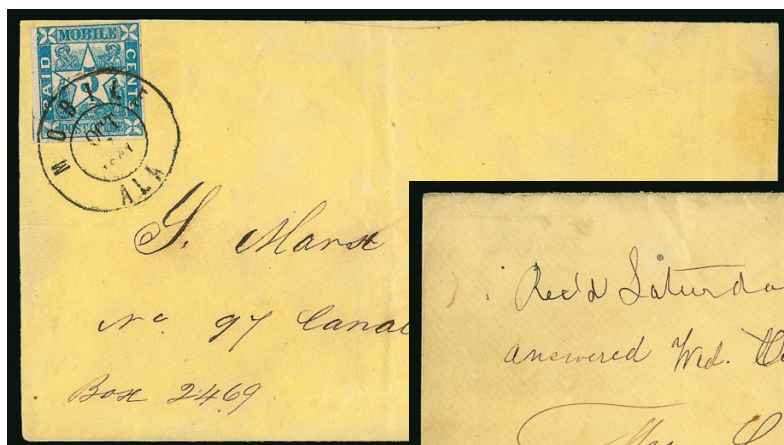 MOBILE
PAID
5
CENTS
POST OFFICE
MOBILE
OCT
ALA
S. Marx
No 97 Canal
Box 2469
Rec'd Saturda
answered Wed.